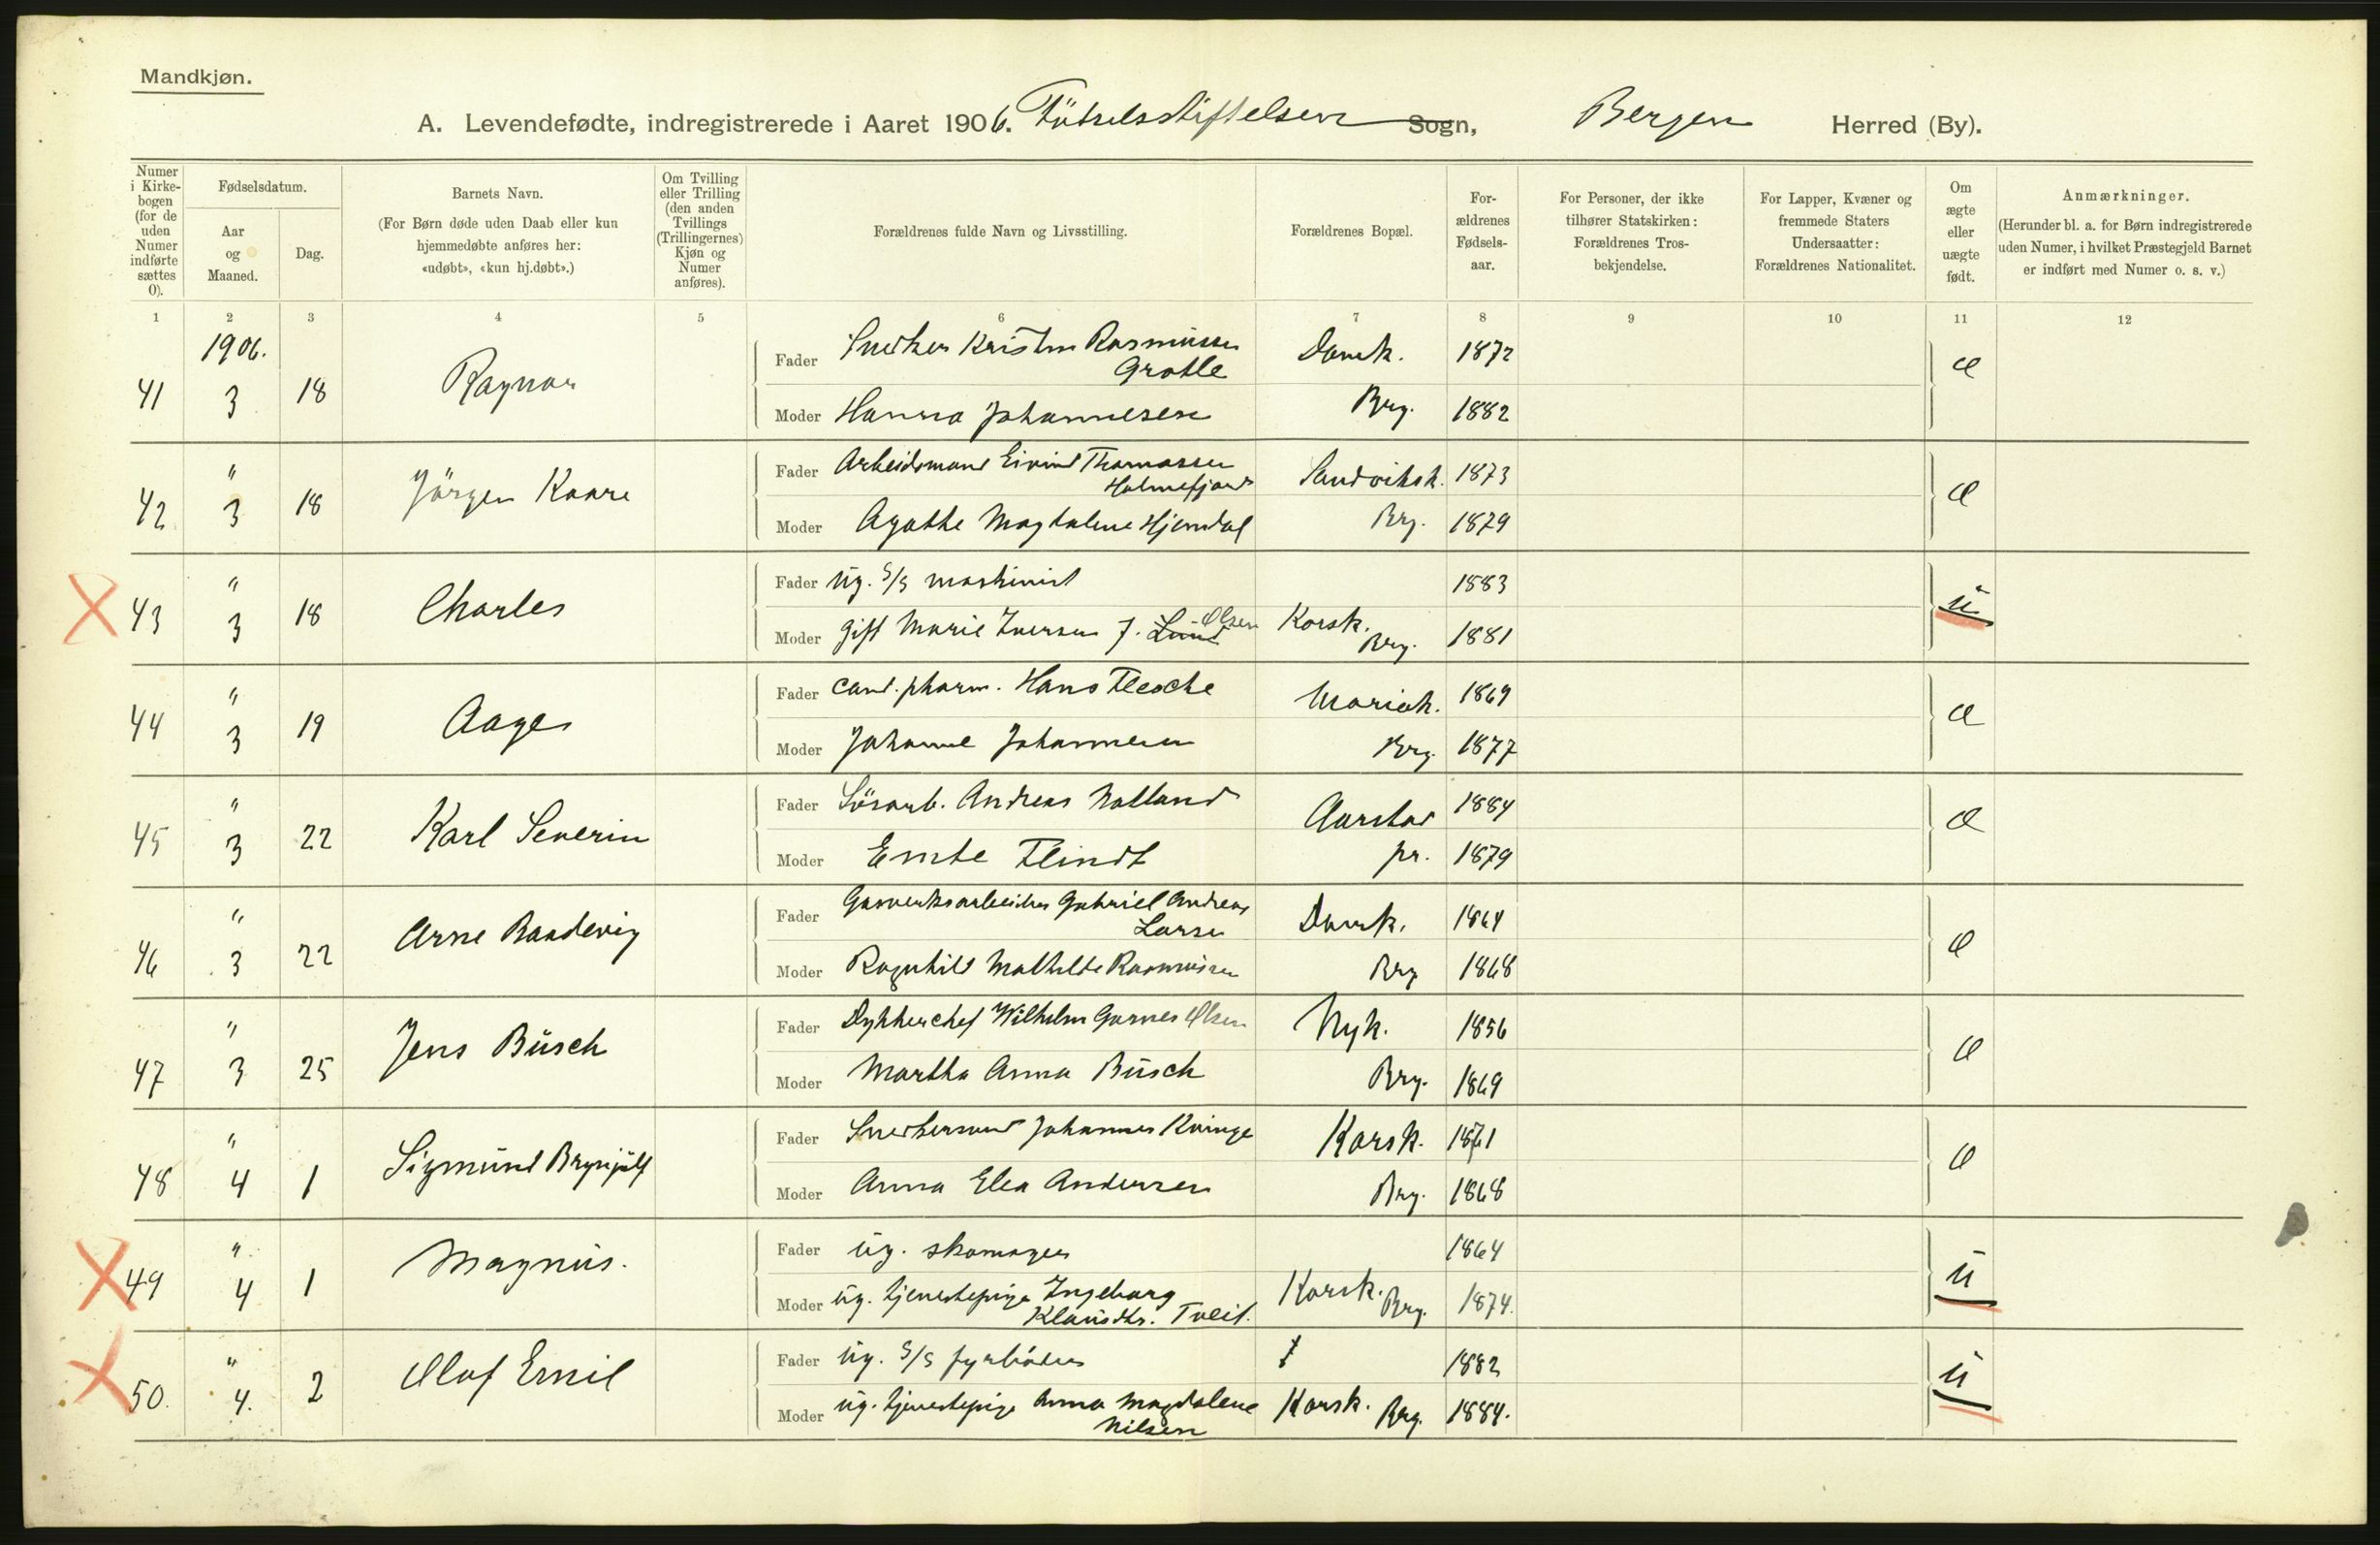 Mandkjøn.
A. Levendefødte, indregistrerede i Aaret 1906. Födselsstiftelsen Sogn, Bergen Herred (By).
Numer i Kirke-bogen (for de uden Numer indførte sættes 0).
Fødselsdatum.
Aar og Maaned.
Dag.
Barnets Navn.
(For Børn døde uden Daab eller kun hjemmedøbte anføres her: «udøbt», «kun hj.døbt».)
Om Tvilling eller Trilling (den anden Tvillings (Trillingernes) Kjøn og Numer anføres).
Forældrenes fulde Navn og Livsstilling.
Forældrenes Bopæl.
For-ældrenes Fødsels-aar.
For Personer, der ikke tilhører Statskirken: Forældrenes Tros-bekjendelse.
For Lapper, Kvæner og fremmede Staters Undersaatter: Forældrenes Nationalitet.
Om ægte eller uægte født.
Anmærkninger.
(Herunder bl. a. for Børn indregistrerede uden Numer, i hvilket Præstegjeld Barnet er indført med Numer o. s. v.)
1 2 3 4 5 6 7 8 9 10 11 12
1906.
41 3 18 Ragnar
Fader Snedker Kristen Rasmussen Grotle Domk. 1872 æ
Moder Hanna Johannesen Brg. 1882
42 " 3 18 Jörgen Kaare
Fader Arbeidsmand Eivind Thomassen Holmefjord Sandviksk. 1873 æ
Moder Agathe Magdalene Hjemdal Brg. 1879
43 " 3 18 Charles
Fader ug. S/S maskinist 1883 u
Moder gift Marie Iversen f. Lund Olsen Korsk. Brg. 1881
44 " 3 19 Aage
Fader cand. pharm. Hans Flesche Mariak. 1869 æ
Moder Johanne Johannesen Brg. 1877
45 " 3 22 Karl Severin
Fader Andreas Natland Aarstad 1884 æ
Moder Emte Flindt pr. 1879
46 " 3 22 Arne
Fader Gasverksarbeider Gabriel Andreas Larsen Domk. 1864 æ
Moder Ragnhild Mathilde Rasmussen Brg 1868
47 " 3 25 Jens Büsch
Fader Dykkerchef Wilhelm Garnes Olsen Nyk. 1856 æ
Moder Martha Anna Büsch Brg. 1869
48 " 4 1 Sigmund Brynjulf
Fader Snedkersvend Johannes Kvinge Korsk. 1871 æ
Moder Anna Elea Andersen Brg. 1868
49 " 4 1 Magnus.
Fader ug. skomager 1864 u
Moder ug. tjenestepige Ingeborg Klausdtr. Tveit. Korsk. Brg. 1874.
50. " 4. 2 Olaf Emil
Fader ug. S/S fyrböder 1882 u
Moder ug. tjenestepige Anna Magdalene Nilsen Korsk. Brg. 1884.